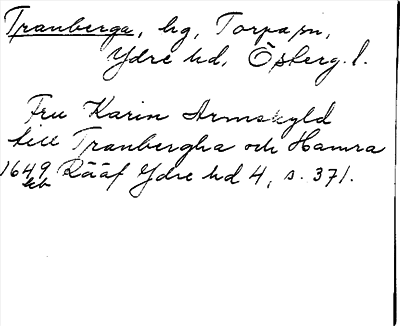 Tranberga, hg, Torpa sn,
Ydre hd, Österg. l.
Fru Karin Armskyld
till Tranbergha och Hamra
1649 Rääf Ydre hd 4, s. 371.